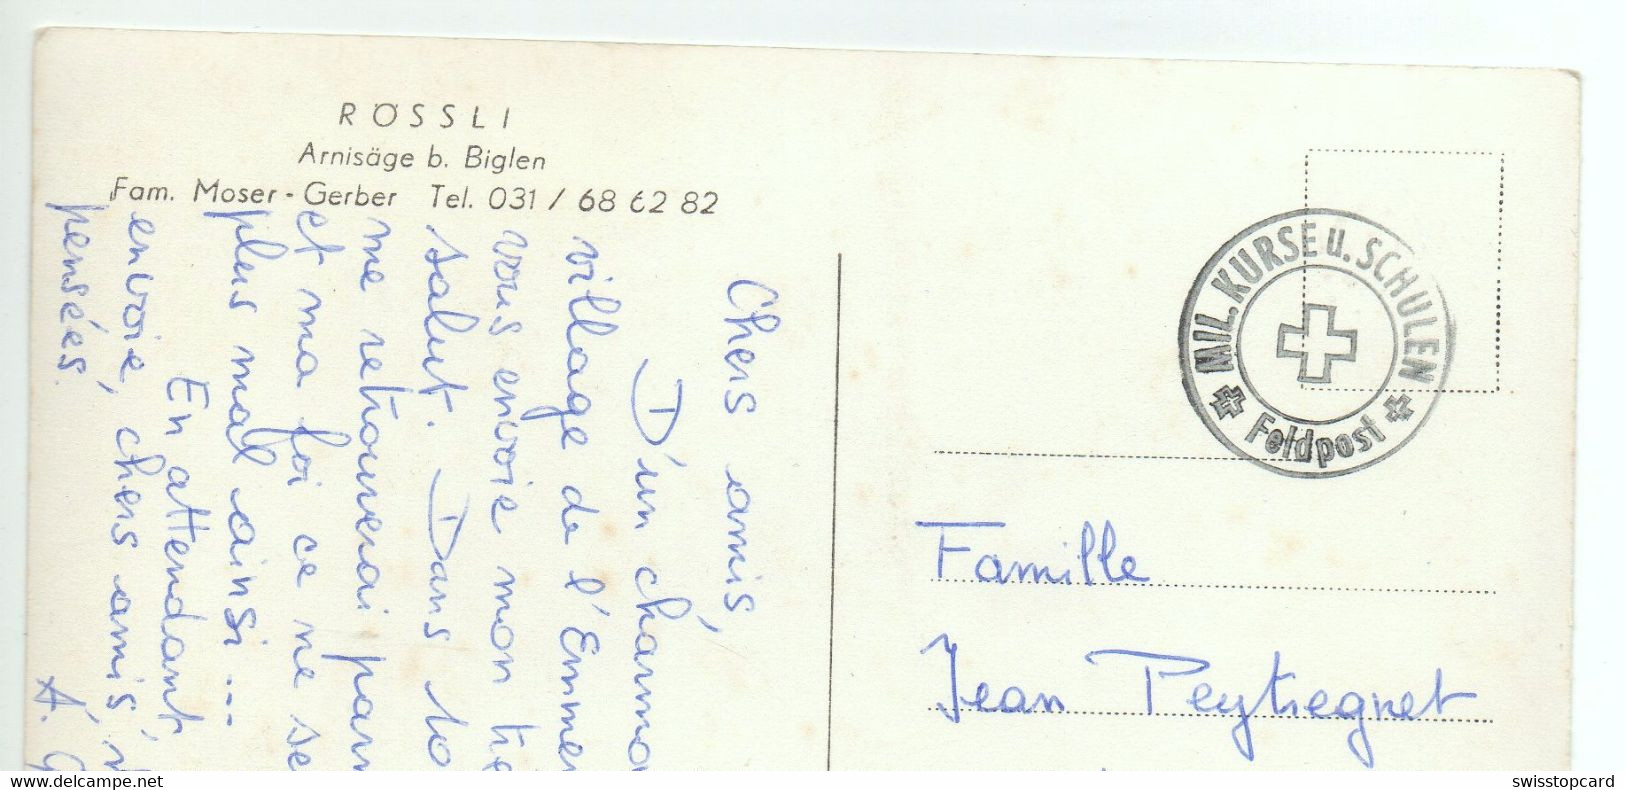 RÖSSLI
Arnisäge b. Biglen
Fam. Moser-Gerber Tel. 031 / 68 62 82
Chers amis,
D'un charma
village de l'Emme
vous envoie mon
salut. Dans
me retrouverai parm
et ma foi ce ne se
plus mal ainsi...
En attendant,
envoie, chers amis,
pensées.
MIL. KURSE u. SCHULEN
Feldpost
Famille
Jean Peytregnet
www.delcampe.net
swisstopcard